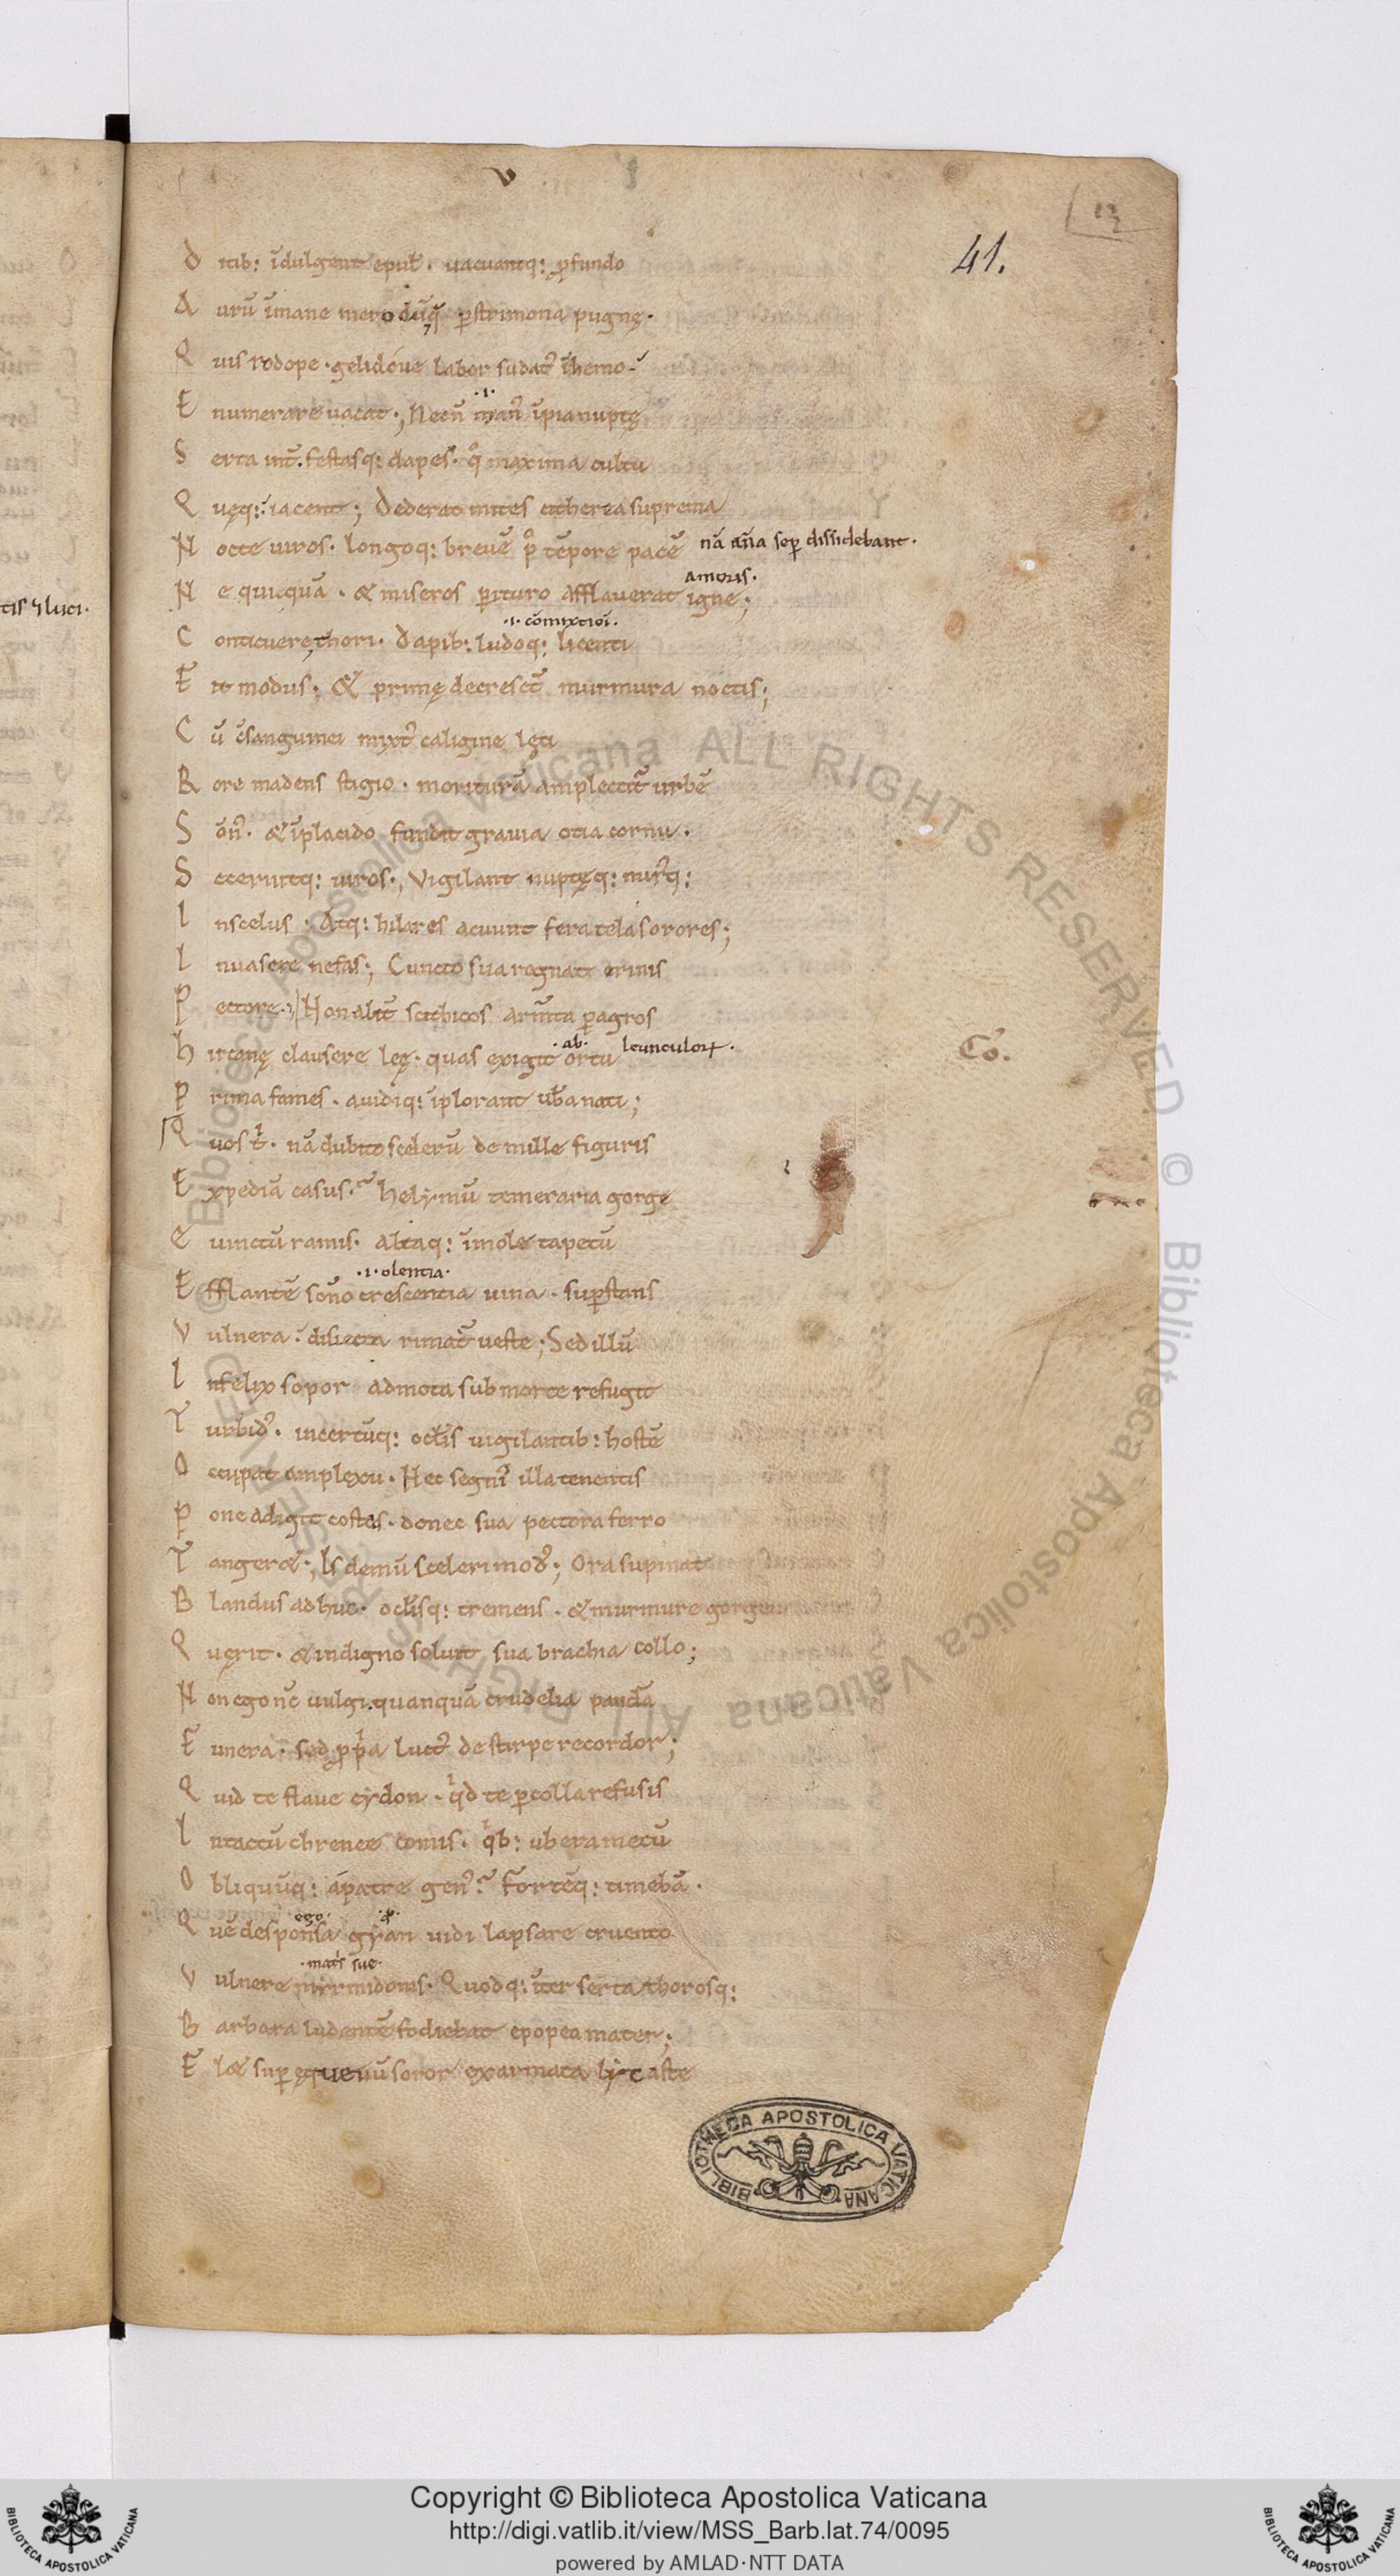 v
41.
D itib: ĩdulgent epul̃. uacuantq: ꝓfundo
A urũ ĩmane mero dũq̃ ꝑstrimona pugnę.
Q uis rodope. gelidóue labor sudatꝰ ĩhemo
.i.
E numerare uacat; Necñ ĩpianuptę
S erta int̃. festasq: dapes. qͦ maxima cultu
Q uęq: iacent; Dederat mites citherea suprema
N octe uiros. longoq: breuẽ pͦ tẽpore pacẽ nã añа sep̱ dissidebant.
amoris.
N e quicquã. & miseros ꝑituro afflauerat igne;
.i. cõmixtiõi.
C onticuere, thori. Dapib: ludoq: licenti
F it modus; & primę decresct̃ murmura noctis;
C ũ c̃sanguinei mixtꝰ caligine lęti
R ore madens stigio. moriturã amplectit̃ urbẽ
S õnꝰ. & ĩplacido fundit grauia otia cornu.
S ecernitq: uiros; Vigilant nuptęq: nurꝰq:
I nscelus. Atq: hilares acuunt fera tela sorores;
I nuasere nefas; Cuncto sua regnat erinis
P ectore; Non alit̃ scithicos arm̃ta ꝑagros
ab. leunculoꝝ.
H ircanę clausere leę. quas exigit ortu
Co.
P rima fames. auidiq: ĩplorant ub̃a nati;
Q uos tͥ. nã dubito scelerũ de mille figuris
E xpediã casus. helymũ temeraria gorge
E uinctũ ramis. altaq: ĩmole tapetũ
.i. olentia.
E fflantẽ sõno crescentia uina. suꝑstans
V ulnera. disiecta rimat̃ ueste; Sed illũ
I nfelix sopor admota sub morte refugit
T urbidꝰ. incertũq: ocl̃is uigilantib: hostẽ
O ccupat amplexu. Nec segniꝰ illa tenentis
P one adigit costas. donec sua pectora ferro
T angeret; Is demũ sceleri modꝰ; Ora supinat
B landus adhuc. ocl̃isq: tremens. & murmure gorgen
Q uęrit. & indigno soluit sua brachia collo;
N on ego nc̃ uulgi. quanquã crudelia pandã
F unera. sed ꝓpͥa luctꝰ de stirpe recordor;
Q uid te flaue cydon. qͥd te ꝑcolla refusis
I ntactũ chrenee comis. qͥb: ubera mecũ
O bliquũq: ápatre genꝰ. Fortẽq: timebã.
ego.
Q uẽ desponsa gyan uidi lapsare cruento
. mat̃s sue.
V ulnere myrmidonis. Quodq: ĩter serta thorosq:
B arbara ludentẽ fodiebat epopea mater;
F l& suꝑ equeuũ soror exarmata lycaste
BIBLIOTHECA APOSTOLICA VATICANA
Copyright © Biblioteca Apostolica Vaticana
http://digi.vatlib.it/view/MSS_Barb.lat.74/0095
powered by AMLAD·NTT DATA